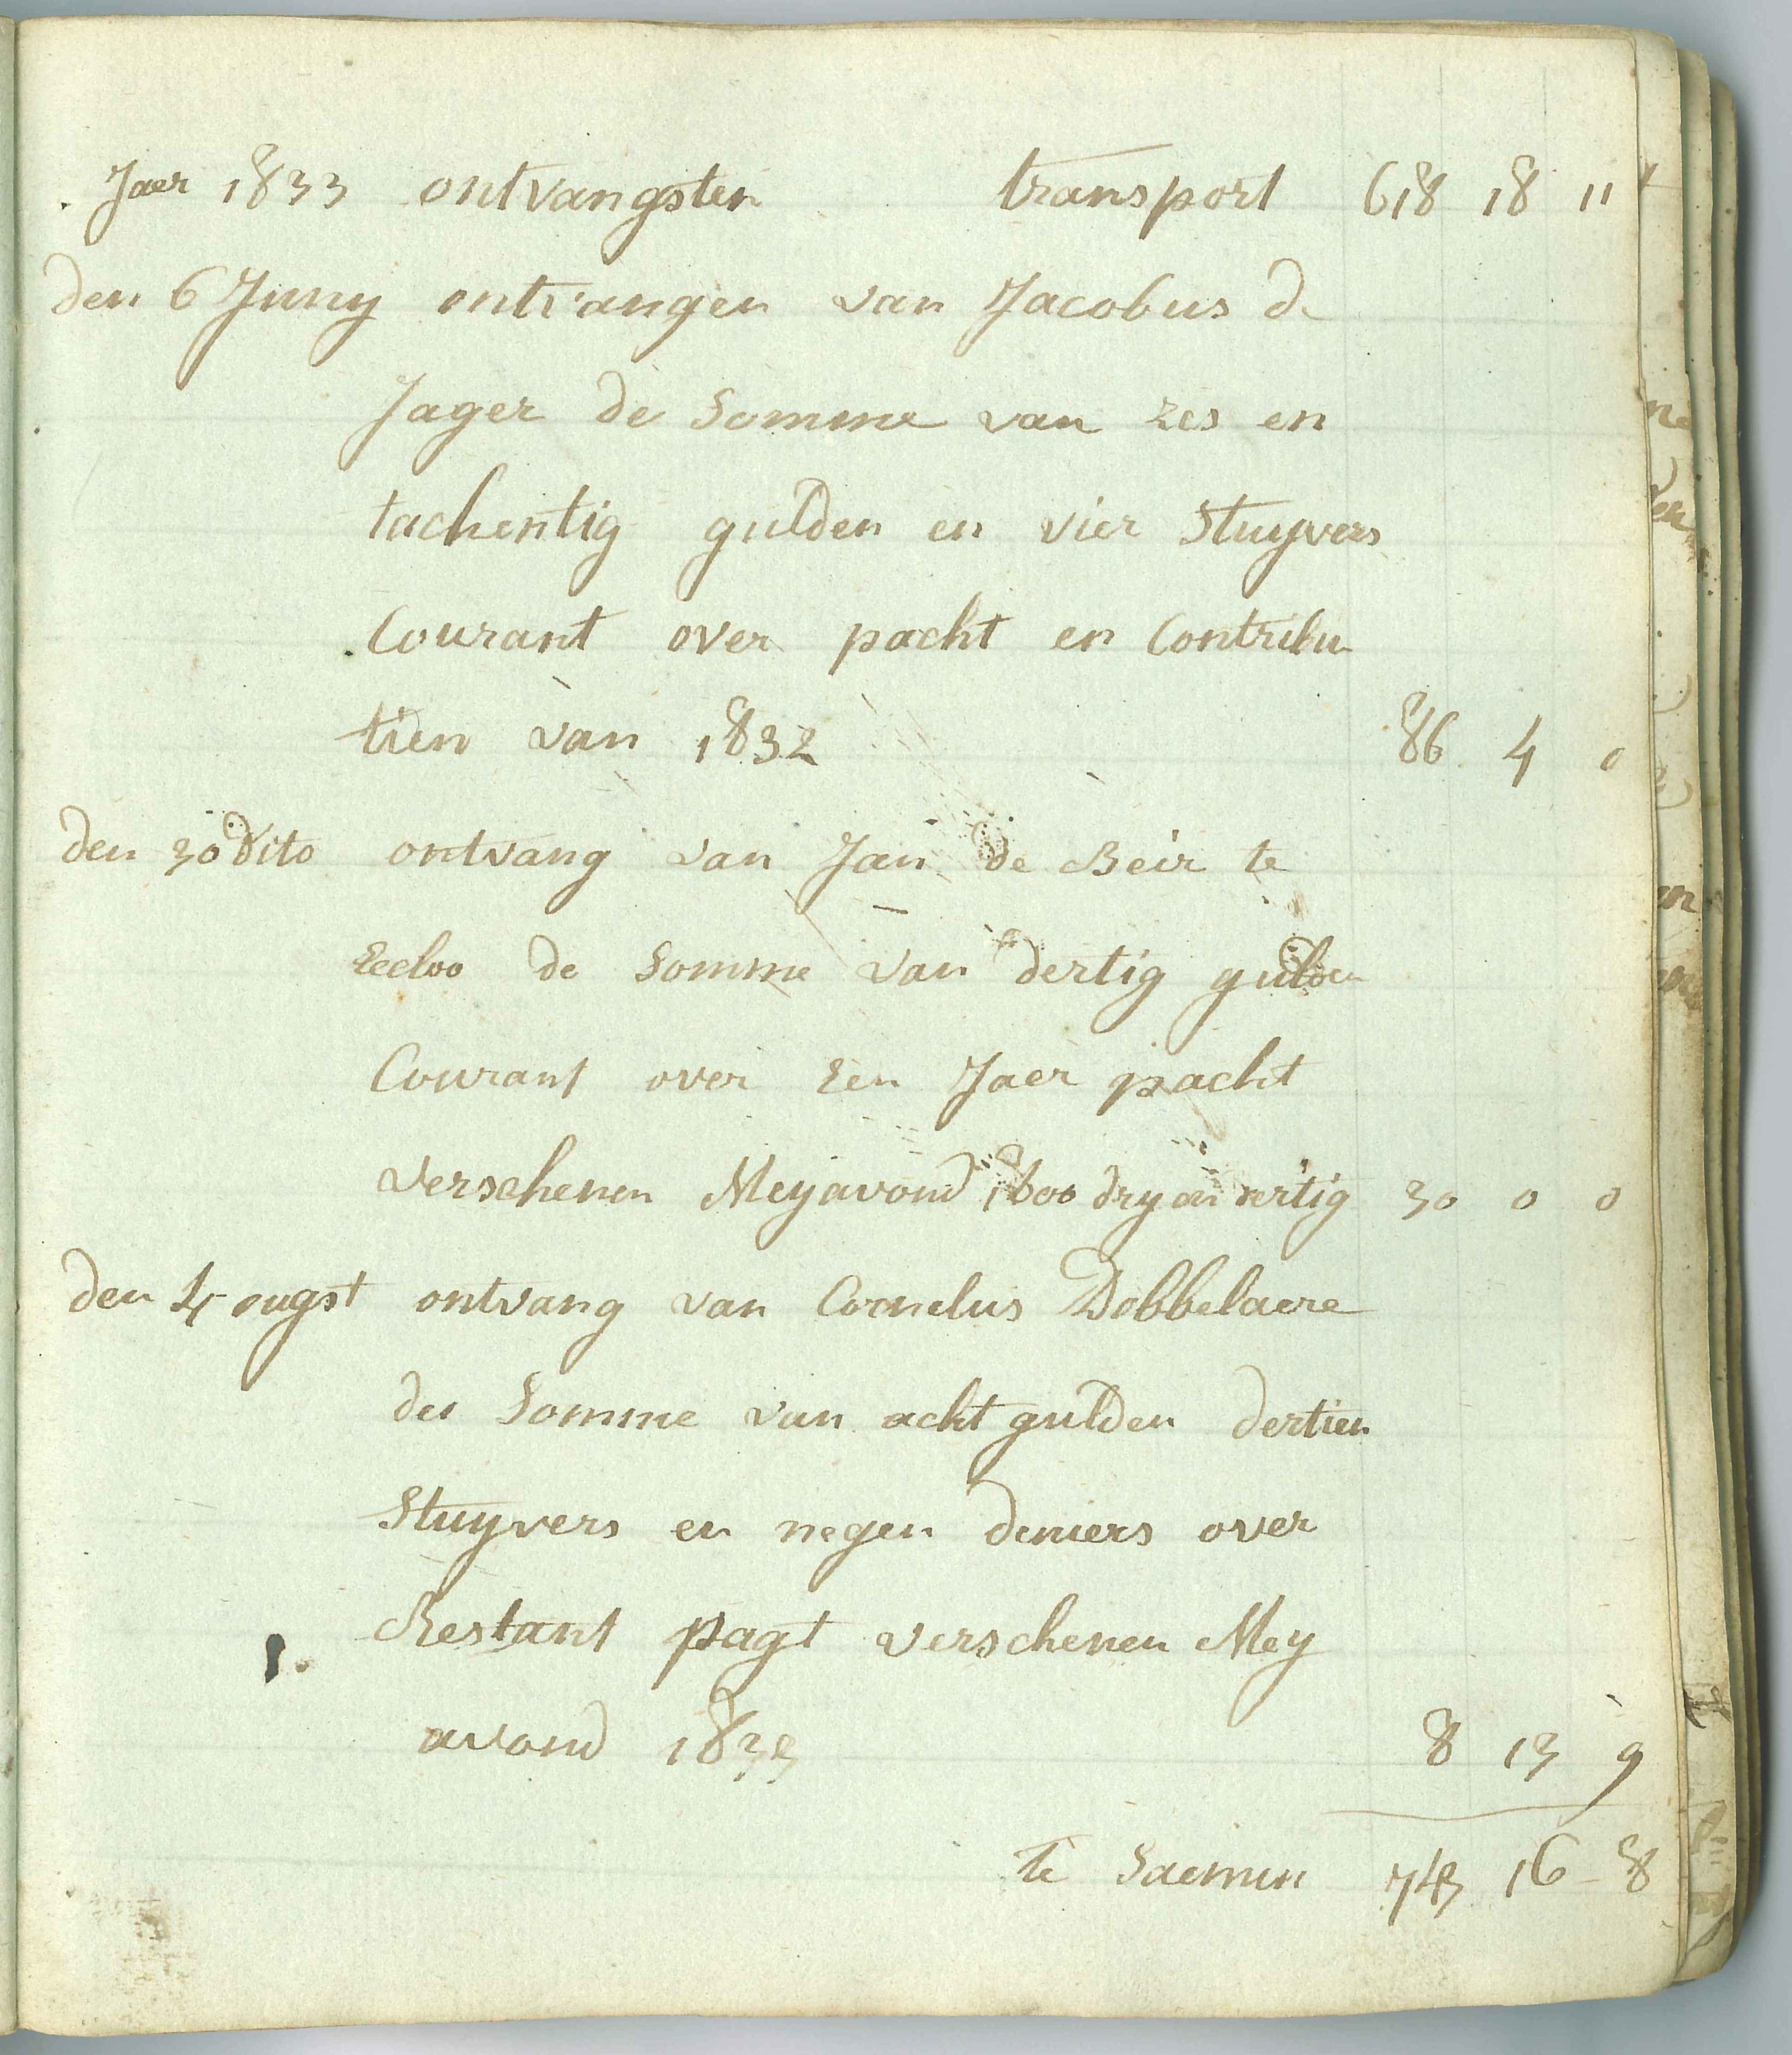 Jaer 1833 ontvangsten transport 618 18 11
den 6 Juny ontvangen van Jacobus de
Jager de Somme van zes en
tachentig gulden en vier Stuyvers
Courant over pacht en Contribu
tien van 1832 86 4 0
den 30 dito ontvang van Jan de Beir te
Eecloo de Somme van dertig gulden
Courant over Een Jaer pacht
verschenen Meyavond 1800 dry en dertig 30 0 0
den 4 ougst ontvang van Cornelus Dobbelaere
de Somme van acht gulden dertien
Stuyvers en negen deniers over
Restant pagt verschenen Mey
avond 1833 8 13 9
te Saemen 743 16 8